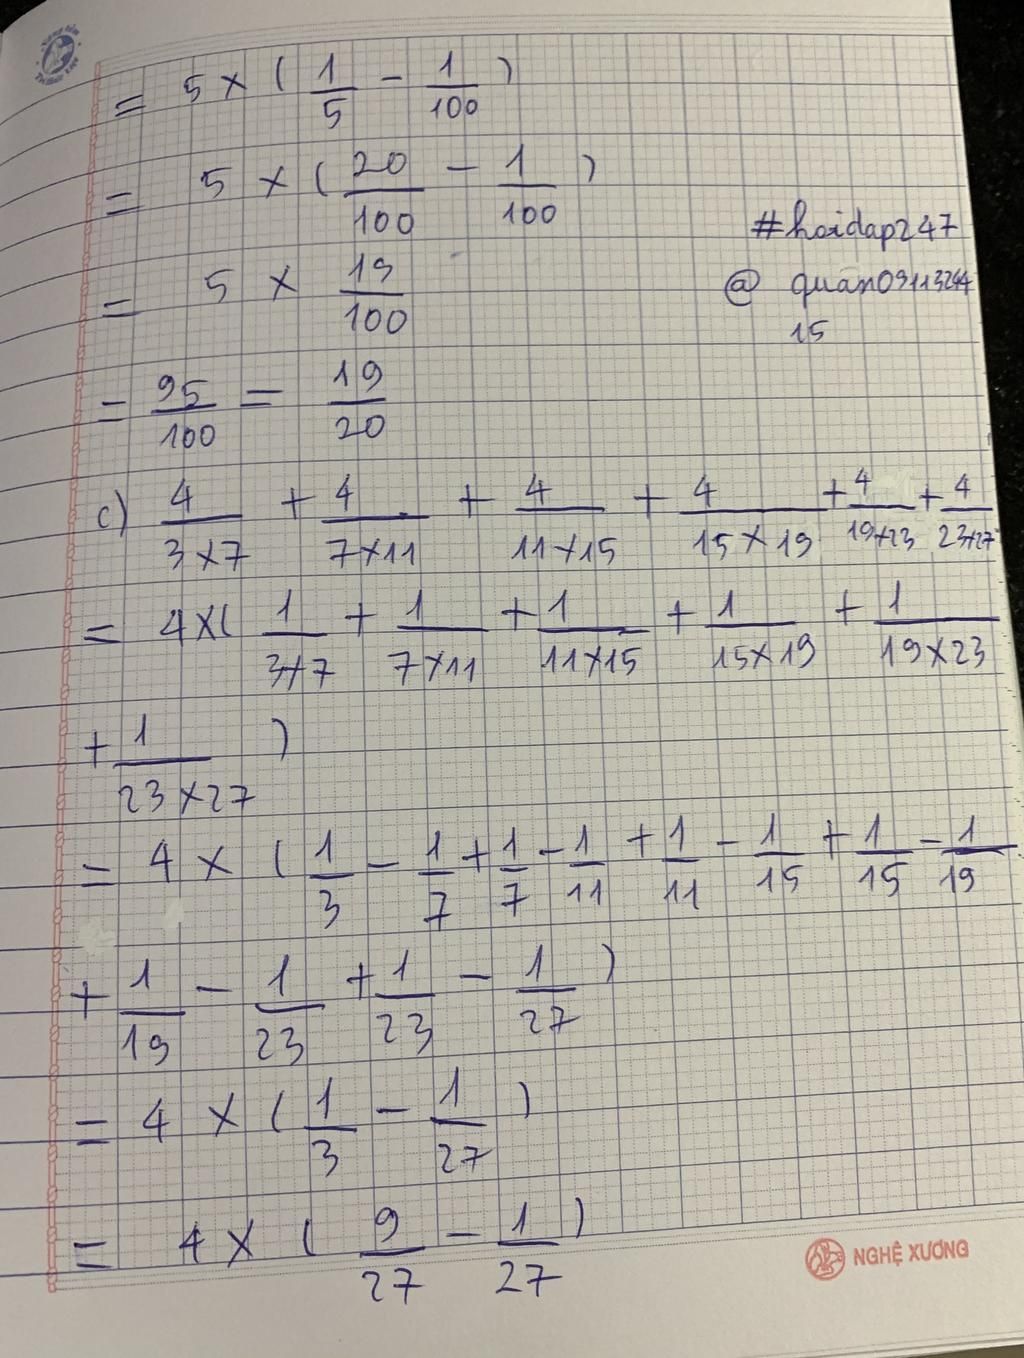 = 5 × ( 1/5 - 1/100 )
= 5 × ( 20/100 - 1/100 )
#hoidap247
= 5 × 19/100
@quan03113244
15
= 95/100 = 19/20
c) 4/3×7 + 4/7×11 + 4/11×15 + 4/15×19 + 4/19×23 + 4/23×27
= 4×( 1/3×7 + 1/7×11 + 1/11×15 + 1/15×19 + 1/19×23
+ 1/23×27 )
= 4 × ( 1/3 - 1/7 + 1/7 - 1/11 + 1/11 - 1/15 + 1/15 - 1/19
+ 1/19 - 1/23 + 1/23 - 1/27 )
= 4 × ( 1/3 - 1/27 )
= 4 × ( 9/27 - 1/27 )
NGHỆ XƯƠNG